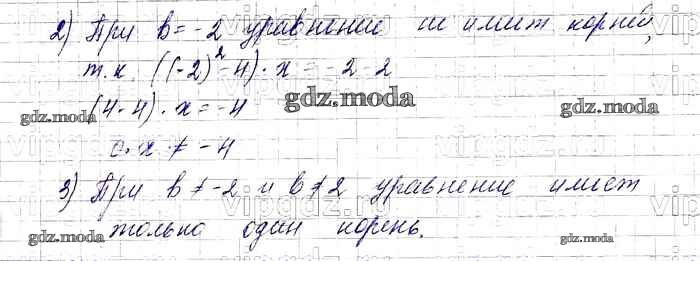 2) При b = -2 уравнение не имеет корней,
т.к. ((-2)² - 4) · x = -2 - 2
(4 - 4) · x = -4
gdz.moda gdz.moda gdz.moda
0 · x ≠ -4
3) При b ≠ -2 и b ≠ 2 уравнение имеет
только один корень.
gdz.moda gdz.moda gdz.moda